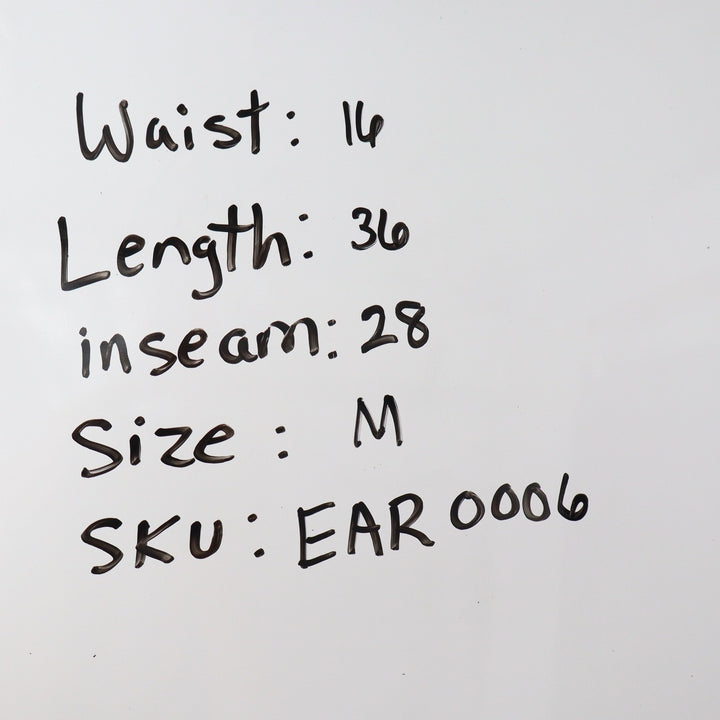 Waist: 16
Length: 36
inseam: 28
Size: M
SKU: EAR0006